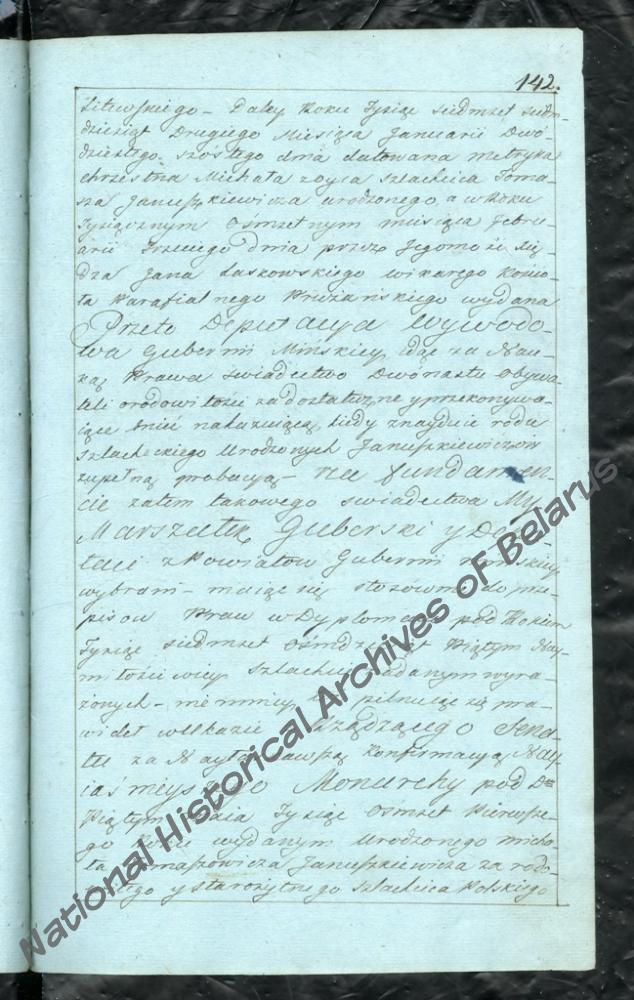 142.
Litewskiego – Daley Roku Tysiąc siedmset siedm-
dziesiąt Drugiego Miesiąca Januarii Dwó-
dziestego szóstego dnia datowana metryka
chrzestna Michała z oyca szlachcica Toma-
sza Januszkiewicza urodzonego a w Roku
Tysiącznym Ośmsetnym miesiąca Febru-
arii Trzeciego dnia przez Jegomości Xię-
dza Jana Laskowskiego wikarego Kościo-
ła Parafialnego wydana
Przeto Deputacya Wywodo-
wa Gubernii Mińskiey idąc za Nau-
ką Prawa świadectwo Dwónastu Obywa-
teli o rodowitości za dostateczne y przekonywa-
iące mieć nakazuiącą, kiedy znayduie rodu
szlacheckiego Urodzonych Januszkiewiczów
zupełną probacyą – na fundamen-
cie zatem takowego świadectwa My
Marszałek Guberski y Depu-
taci z Powiatów Gubernii Mińskiey
wybrani – maiąc się stosównie do prze-
pisow Praw w Dyplomacie pod Rokiem
Tysiąc siedmset Ośmdziesiąt Piątym Nay-
miłościwiey szlachcie nadanym wyra-
żonych – niemniey pilnuiąc się pra-
wideł w Ukazie Rządzącego Sena-
tu za Nayłaskawszą Konfirmacyą Nay-
iaśnieyszego Monarchy pod Dm
Piątym Maia Tysiąc Ośmset Pierwsze-
go Roku wydanym Urodzonego Micha-
ła Tomaszowicza Januszkiewicza za rodo-
witego y starożytnego szlachcica Polskiego
National Historical Archives of Belarus